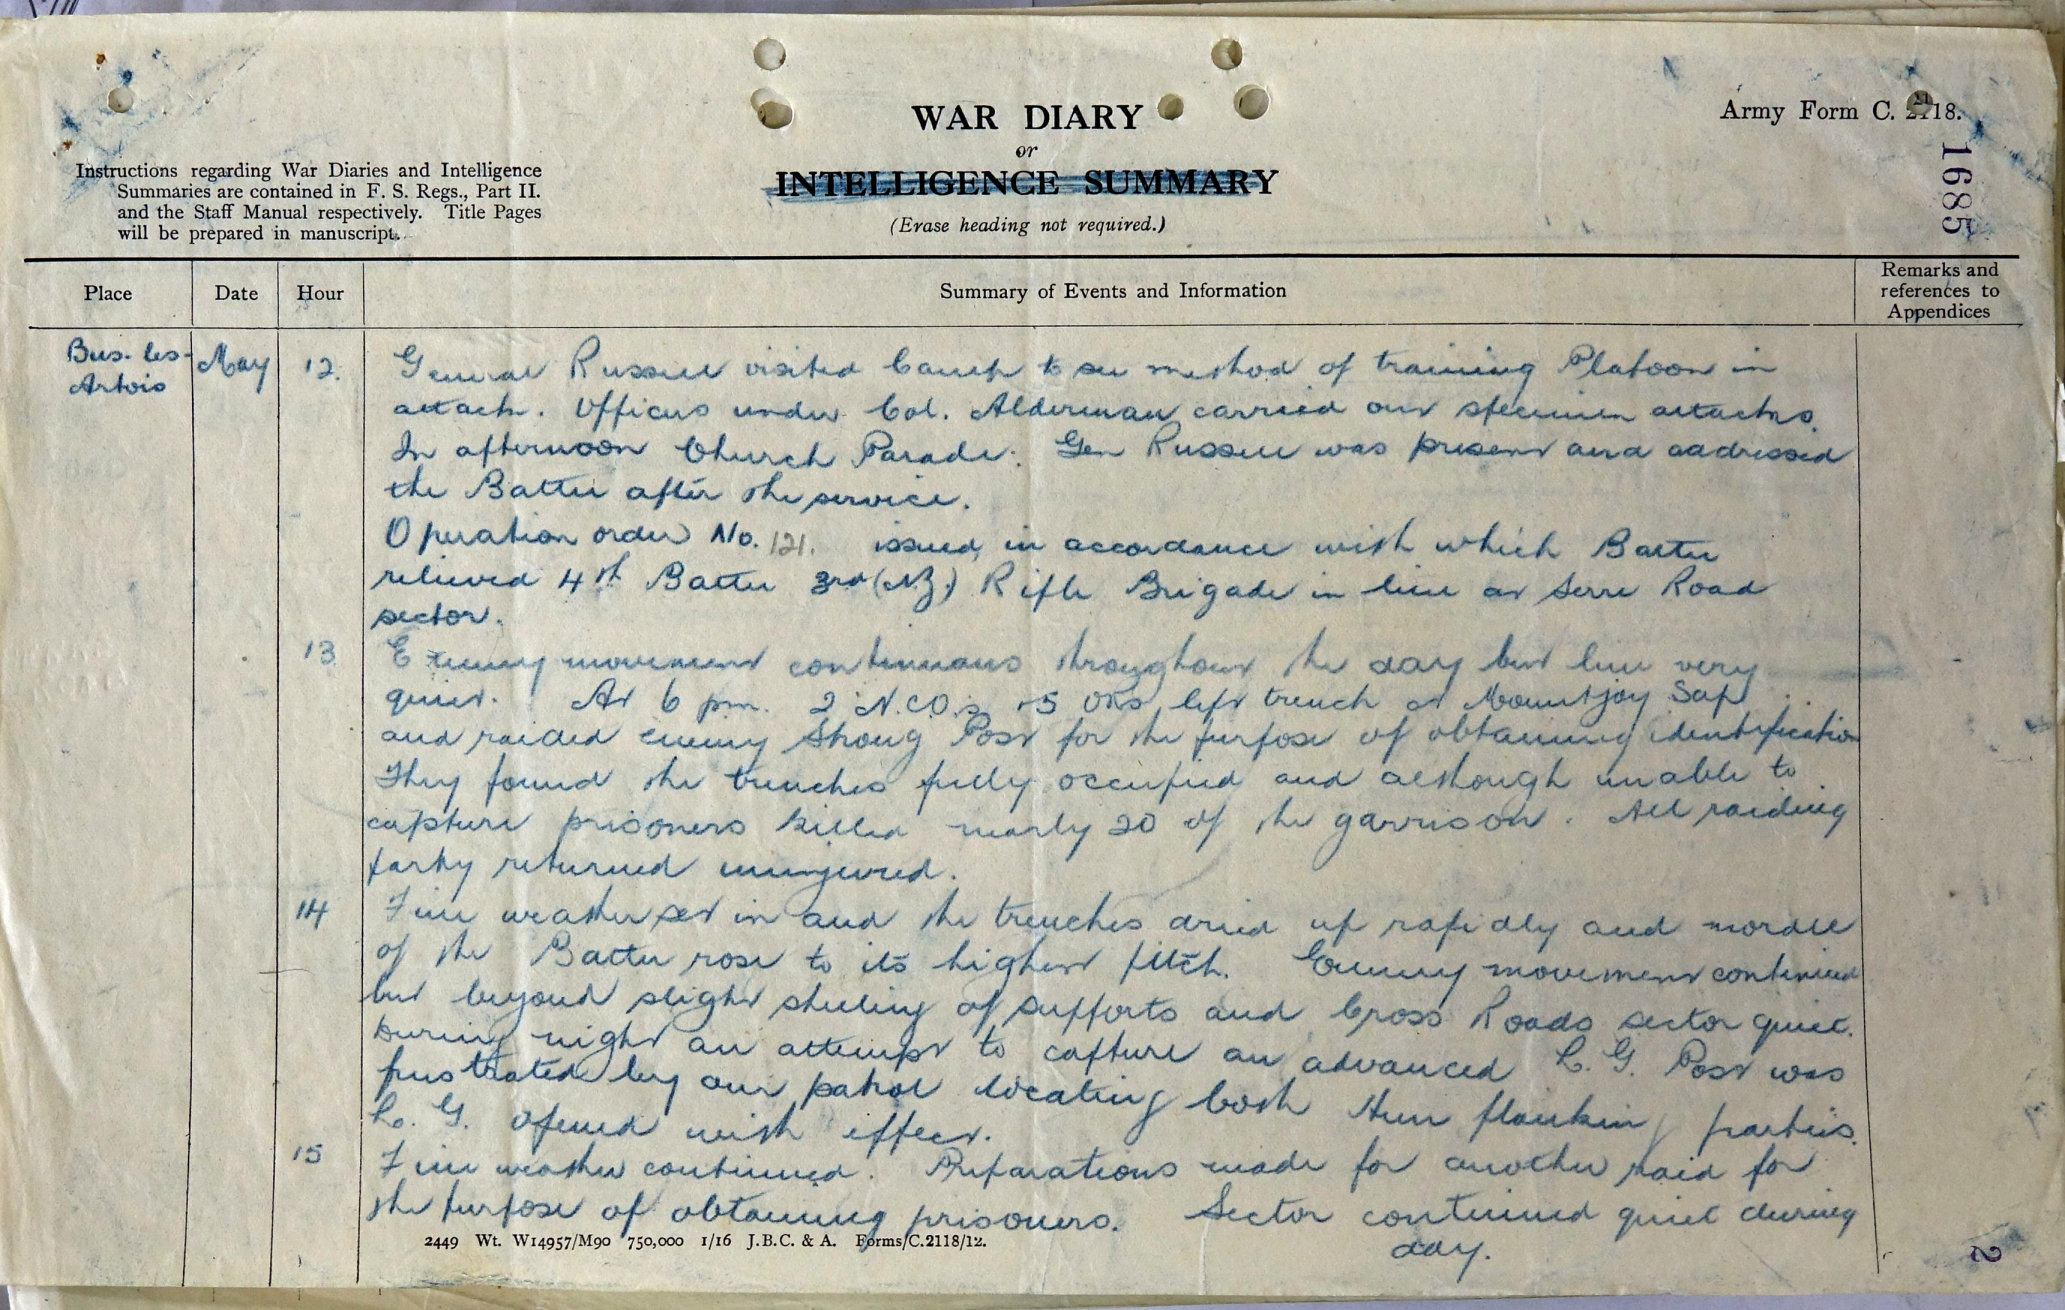 WAR DIARY
or
INTELLIGENCE SUMMARY
(Erase heading not required.)
Army Form C. 2118.
1685
Instructions regarding War Diaries and Intelligence
Summaries are contained in F. S. Regs., Part II.
and the Staff Manual respectively. Title Pages
will be prepared in manuscript.
Place Date Hour Summary of Events and Information Remarks and
references to
Appendices
Bus-les-
Artois
May 12. General Russell visited Camp to see method of training Platoon in
attack. Officers under Col. Alderman carried out specimen attacks.
In afternoon Church Parade. Gen Russell was present and addressed
the Battn after the service.
Operation order No. 121. issued, in accordance with which Battn
relieved 4th Battn 3rd (NZ.) Rifle Brigade in line at Serre Road
sector.
13 Enemy movement continuous throughout the day but line very
quiet. At 6 pm. 2 N.C.O.s +5 ORs left trench at Mountjoy Sap
and raided enemy Strong Post for the purpose of obtaining identification
They found the trenches fully occupied and although unable to
capture prisoners killed nearly 20 of the garrison. All raiding
party returned uninjured.
14 Fine weather set in and the trenches dried up rapidly and morale
of the Battn rose to its highest pitch. Enemy movement continued
but beyond slight shelling of supports and Cross Roads sector quiet.
During night an attempt to capture an advanced L.G. Post was
frustrated by our patrol locating both Hun flanking parties.
L. G. opened with effect.
15 Fine weather continued. Preparations made for another raid for
the purpose of obtaining prisoners. Sector continued quiet during
day.
2449 Wt. W14957/M90 750,000 1/16 J.B.C. & A. Forms/C.2118/12.
2